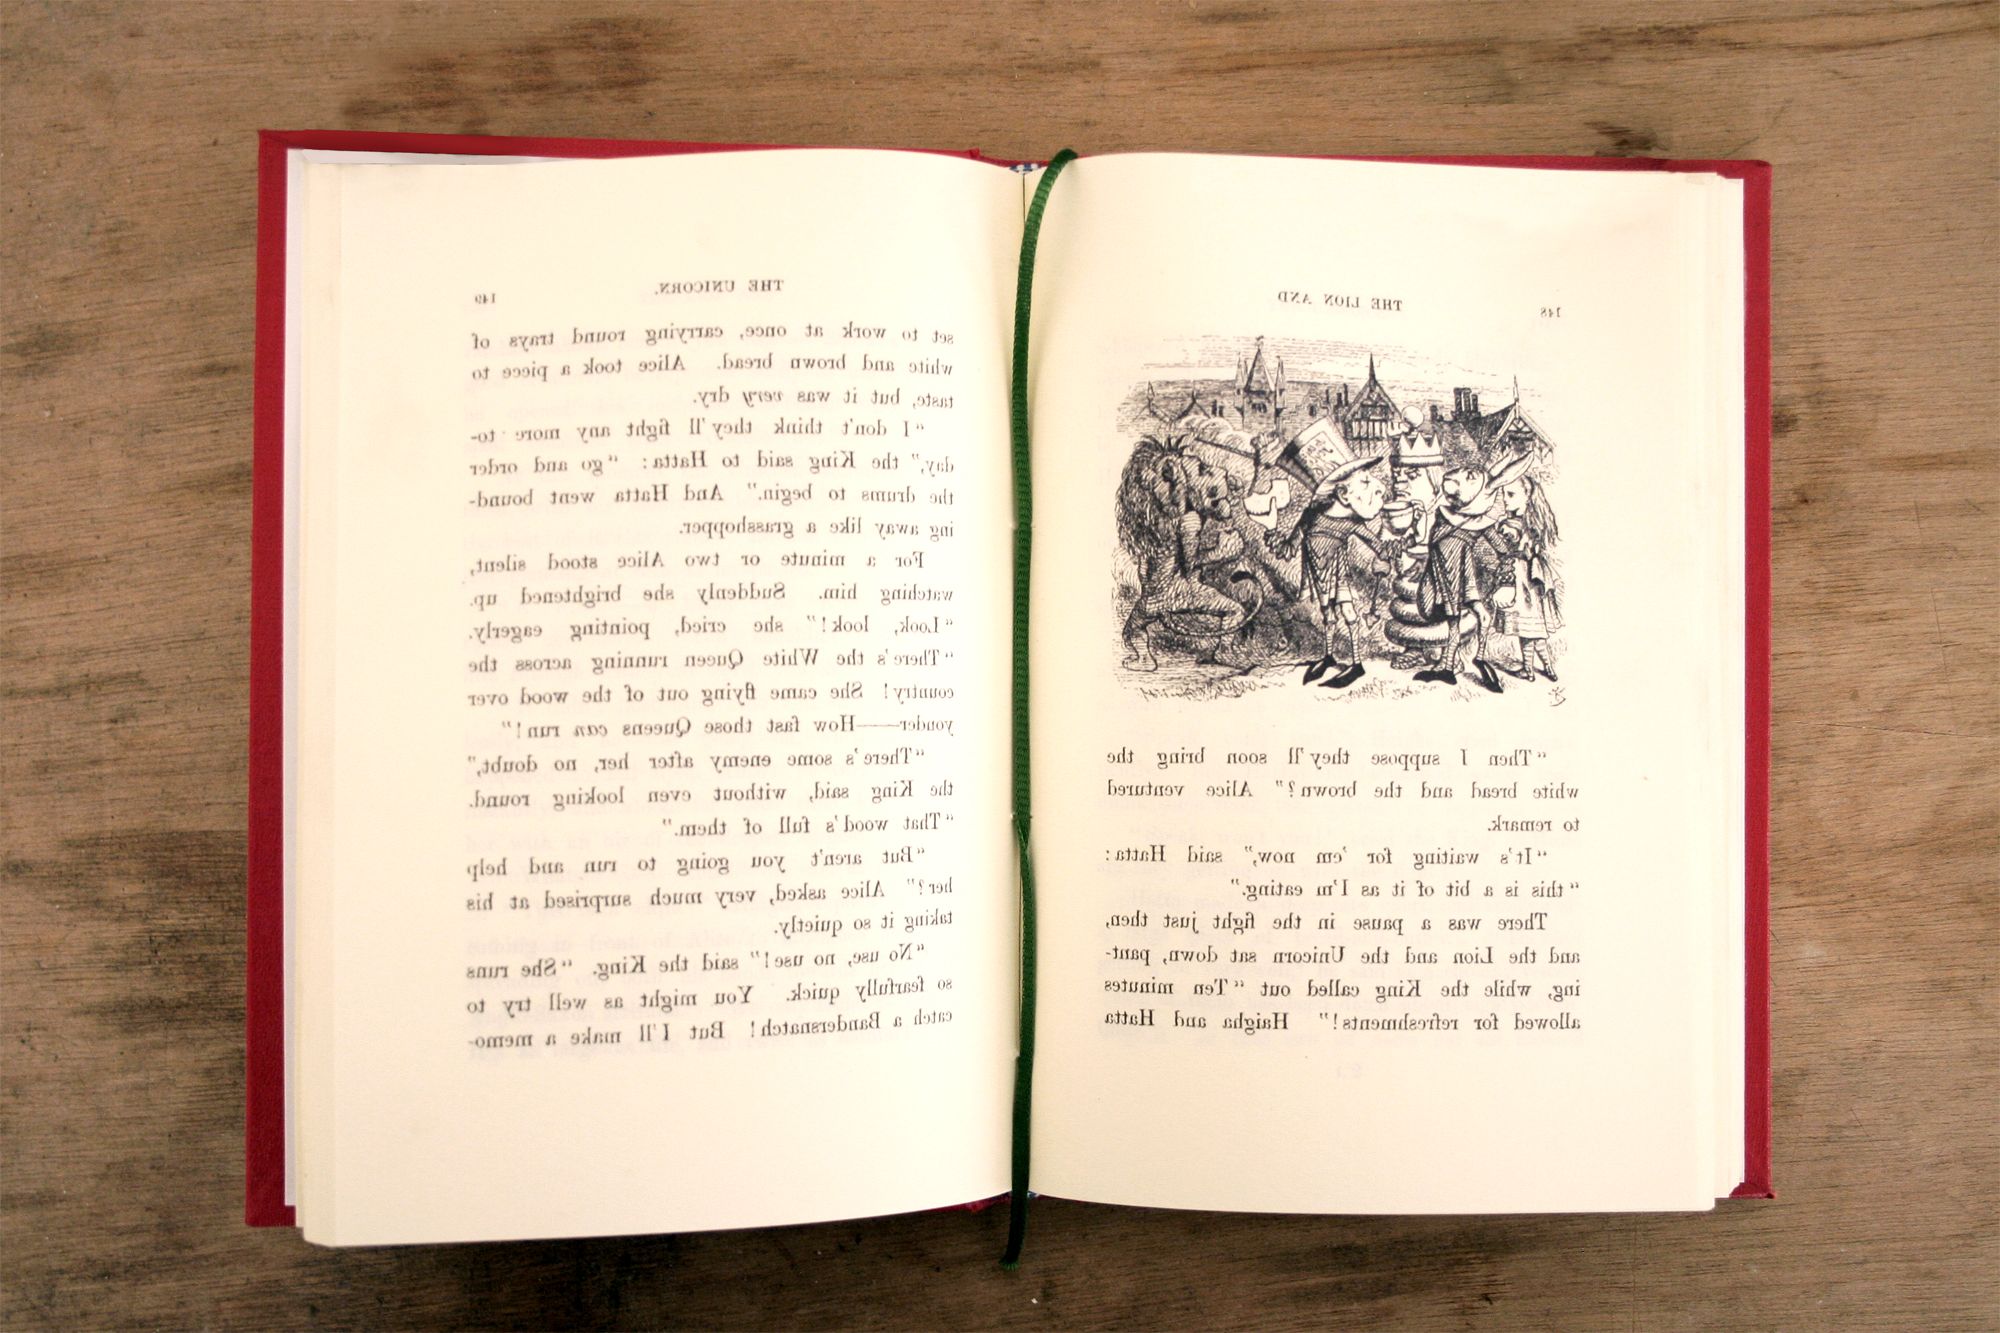 148
THE LION AND
“Then I suppose they’ll soon bring the
white bread and the brown?” Alice ventured
to remark.
“It’s waiting for ’em now,” said Hatta:
“this is a bit of it as I’m eating.”
There was a pause in the fight just then,
and the Lion and the Unicorn sat down, pant-
ing, while the King called out “Ten minutes
allowed for refreshments!” Haigha and Hatta
THE UNICORN.
149
set to work at once, carrying round trays of
white and brown bread. Alice took a piece to
taste, but it was very dry.
“I don’t think they’ll fight any more to-
day,” the King said to Hatta: “go and order
the drums to begin.” And Hatta went bound-
ing away like a grasshopper.
For a minute or two Alice stood silent,
watching him. Suddenly she brightened up.
“Look, look!” she cried, pointing eagerly.
“There’s the White Queen running across the
country! She came flying out of the wood over
yonder——How fast those Queens can run!”
“There’s some enemy after her, no doubt,”
the King said, without even looking round.
“That wood’s full of them.”
“But aren’t you going to run and help
her?” Alice asked, very much surprised at his
taking it so quietly.
“No use, no use!” said the King. “She runs
so fearfully quick. You might as well try to
catch a Bandersnatch! But I’ll make a memo-